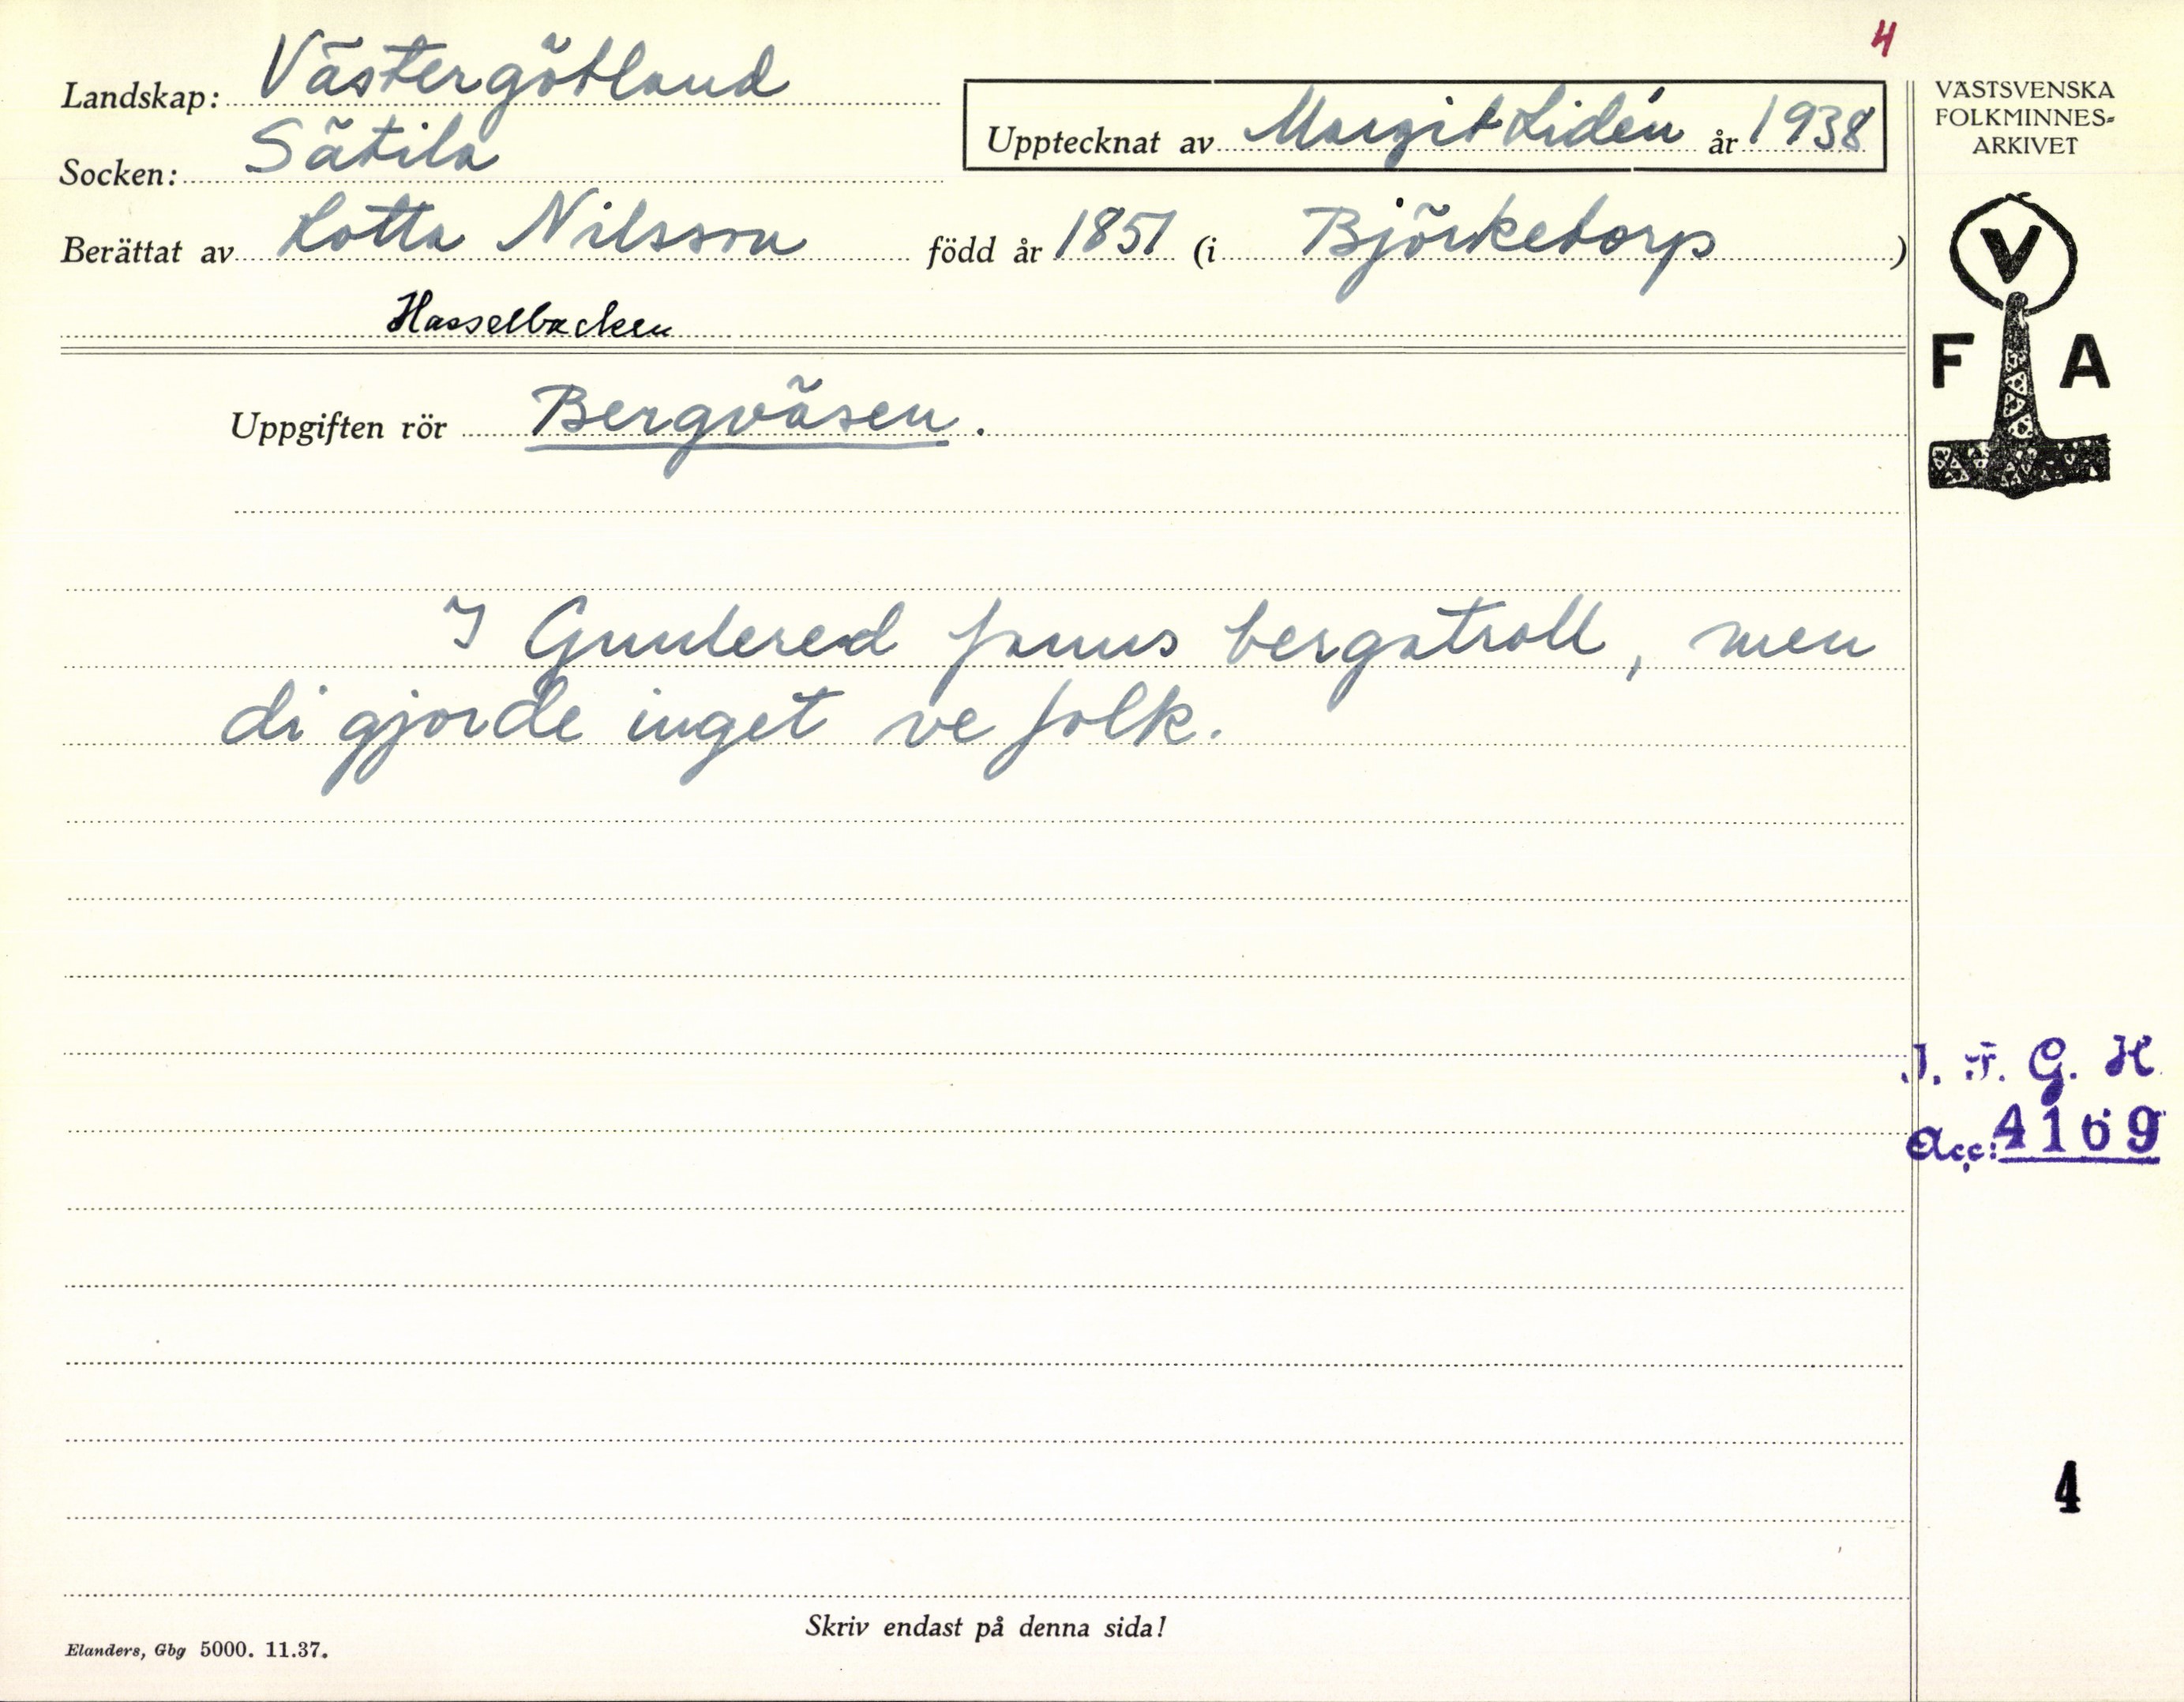 4
Landskap: Västergötland
Socken: Sätila
Upptecknat av Margit Lidén år 1938
Berättat av Lotta Nilsson född år 1851 (i Björketorp)
Hasselbacken
Uppgiften rör Bergväsen.
I Gunlered fanns bergatroll, men
di gjorde inget ve folk.
Skriv endast på denna sida!
Elanders, Gbg 5000. 11.37.
VÄSTSVENSKA
FOLKMINNES=
ARKIVET
V
F A
I. F. G. H
Acc: 4169
4